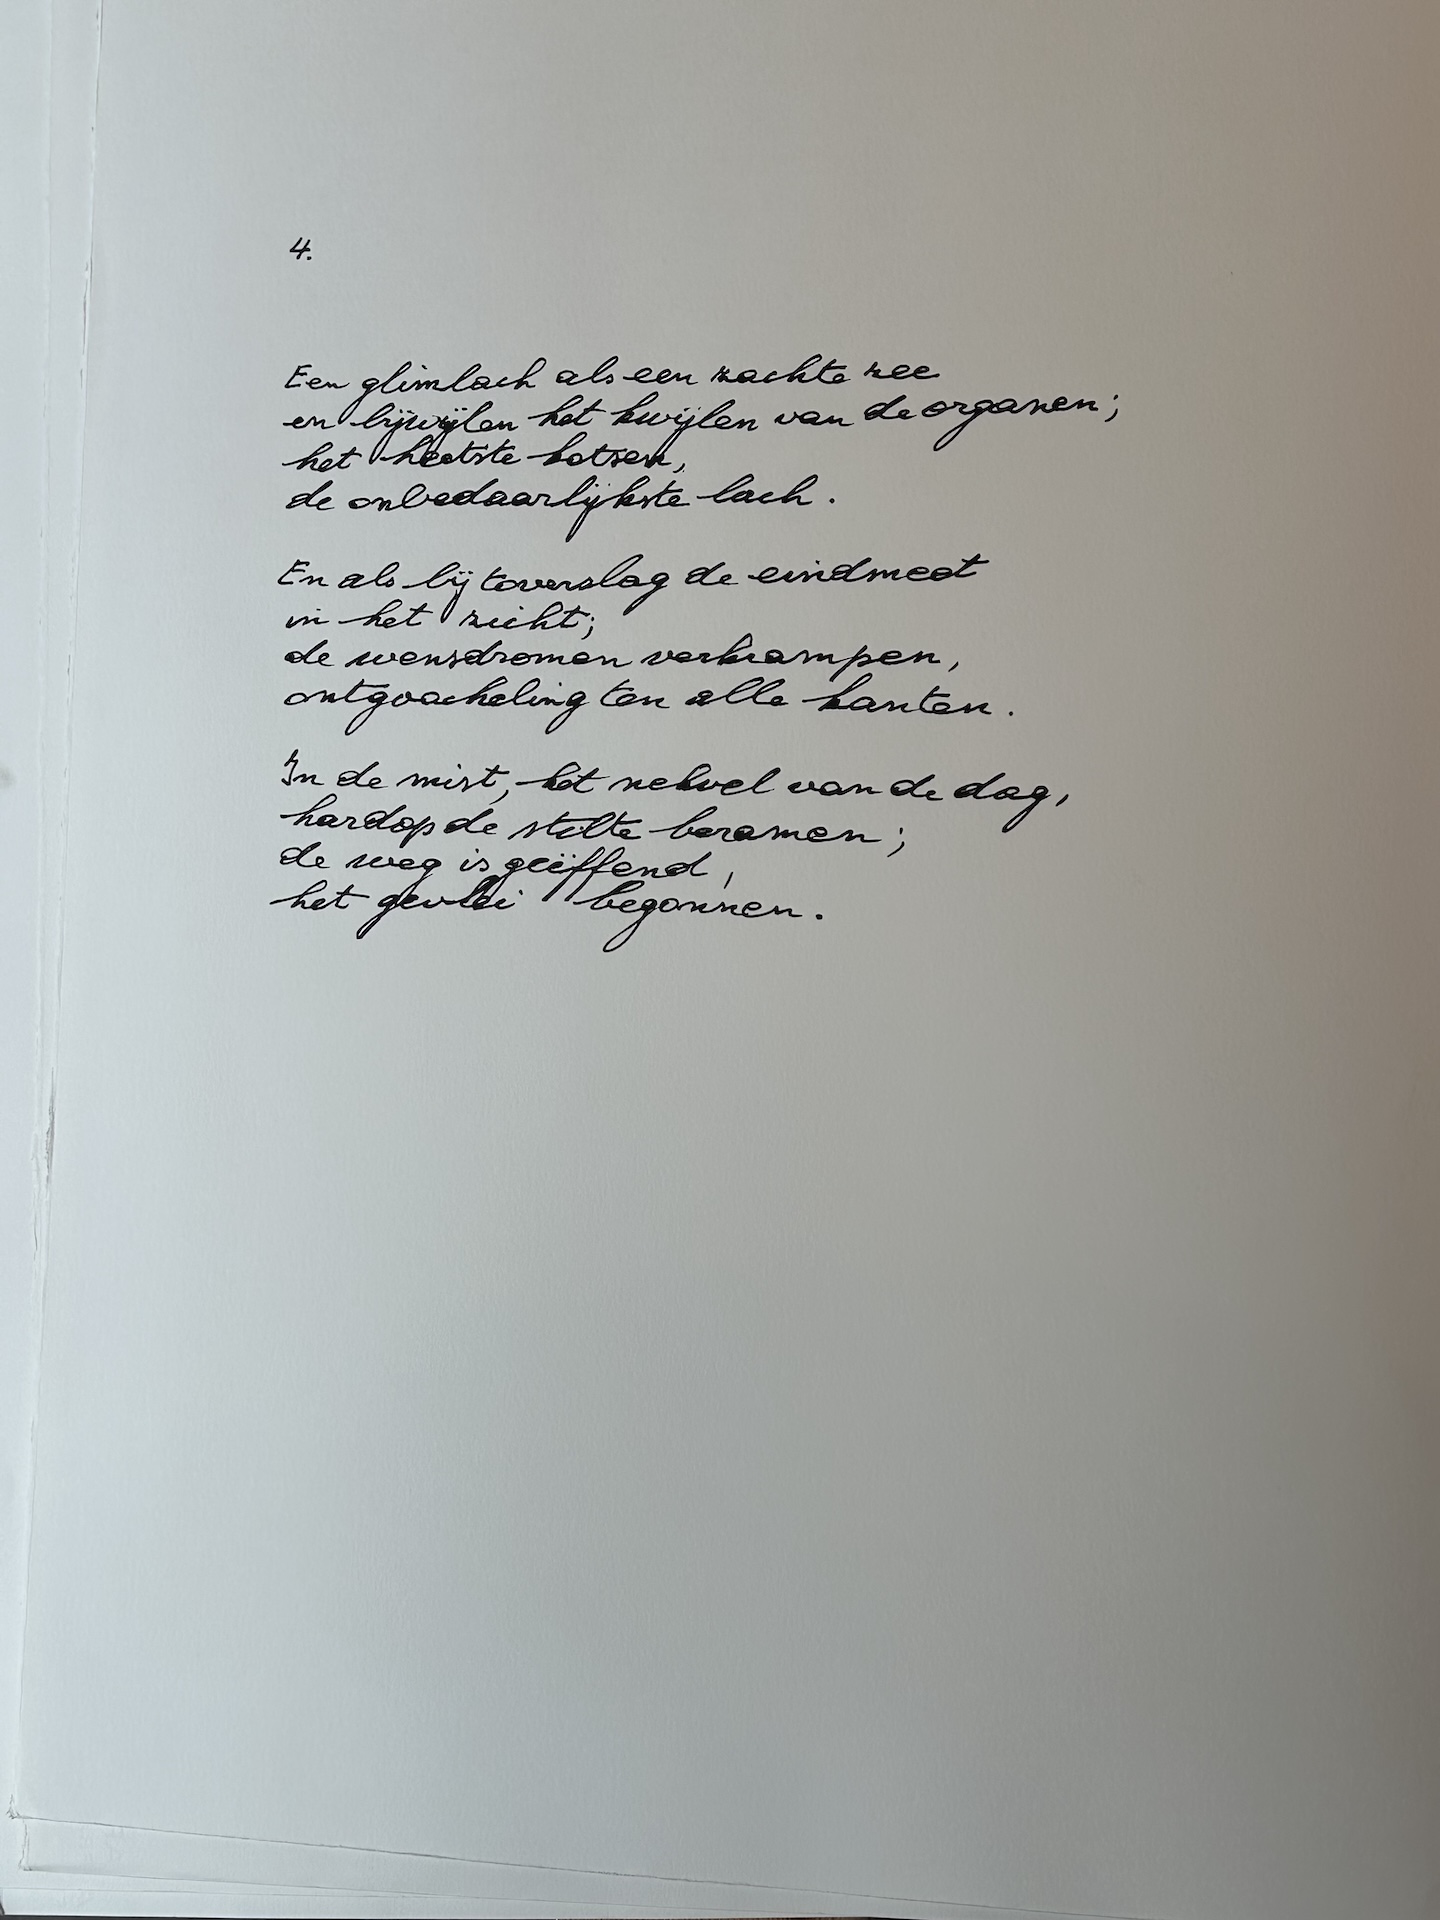 4.
Een glimlach als een zachte zee
en bijwijlen het kwijlen van de organen;
het heetste hotsen,
de onbedaarlijkste lach.
En als bij toverslag de eindmeet
in het zicht;
de wensdromen verkrampen,
ontgoocheling ten alle kanten.
In de mist, het nekvel van de dag,
hardop de stilte beramen;
de weg is geëffend,
het gevlei begonnen.